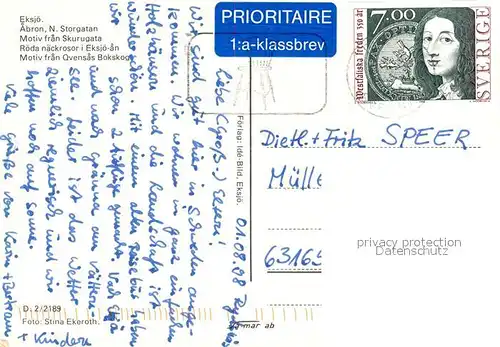 Eksjö.
Åbron, N. Storgatan
Motiv från Skurugata
Röda näckrosor i Eksjö-ån
Motiv från Qvensås Bokskog
PRIORITAIRE
1:a-klassbrev
7.00
Westfaliska freden 350 år
SVERIGE
Förlag: Idé-Bild, Eksjö.
01.08.98
Liebe (Groß-) Eltern!
Wir sind gut hier in Schweden ange-
kommen. Wir wohnen in ganz einfachen
Holzhäusern und die Landschaft ist
wunderschön. Mit einem alten Reisebus haben
wir schon 2 Ausflüge gemacht. Nach Eksjö
und nach Gränna am Vättern-
see. Leider ist das Wetter
ziemlich regnerisch und wir
hoffen noch auf Sonne.
Viele Grüße von Karin + Bertram
+ Kindern
Dietl. + Fritz SPEER
Mülle
63165
privacy protection
Datenschutz
D. 2/2189
Foto: Stina Ekeroth.
mar ab